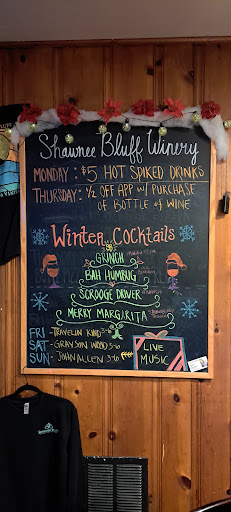 Shawnee Bluff Winery
MONDAY: $5 HOT SPIKED DRINKS
THURSDAY: 1/2 OFF APP W/ PURCHASE
OF BOTTLE of WINE
WINTER COCKTAILS
GRINCH
BAH HUMBUG
SCROOGE DRIVER
MERRY MARGARITA
FRI - TRAVELIN KIND 3-6
SAT - GRAYSON WOOD 3-6
SUN - JOHN ALLEN 3-6
LIVE
MUSIC